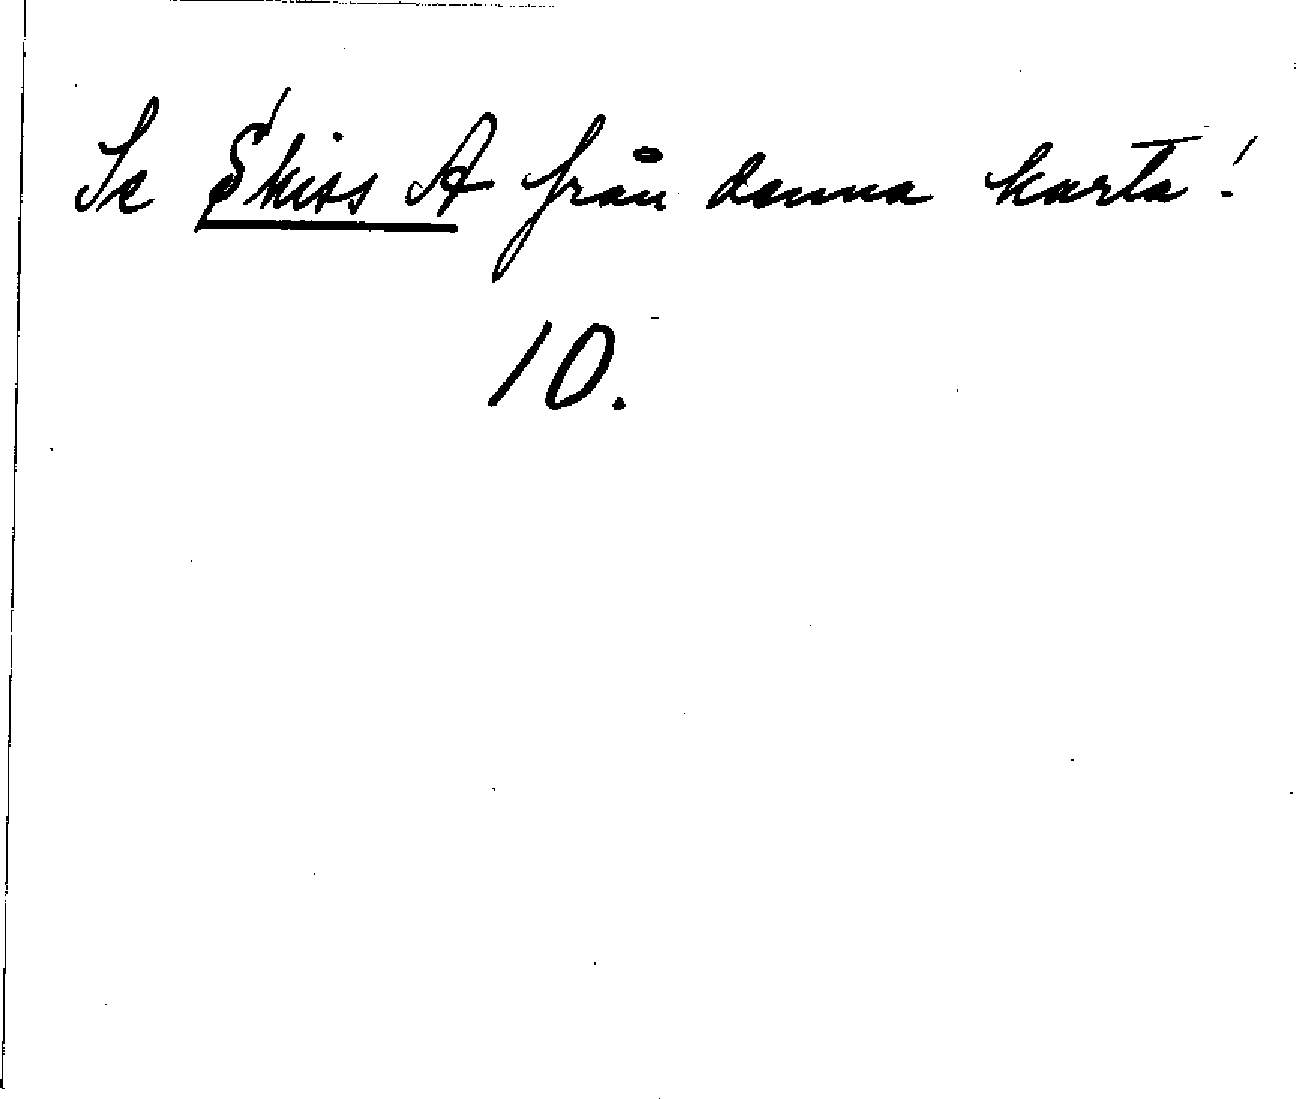 Se Skiss A från denna karta!
10.